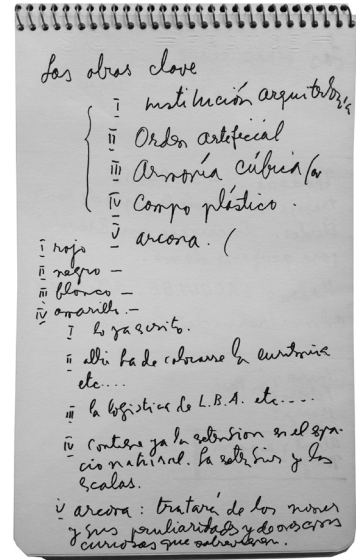 Las obras clave
I institución arquitectología
II Orden artificial
III Armonía cúbica
IV Campo plástico.
V arcora. (
I rojo
II negro –
III blanco –
IV amarillo. –
I lo ya escrito.
II allí ha de colocarse la euritmia
etc....
III la logística de L.B.A. etc.....
IV contiene ya la extensión en el espa-
cio natural. La extensión y las
escalas.
V arcora: tratará de los
y sus peculiaridades y de
curiosas que